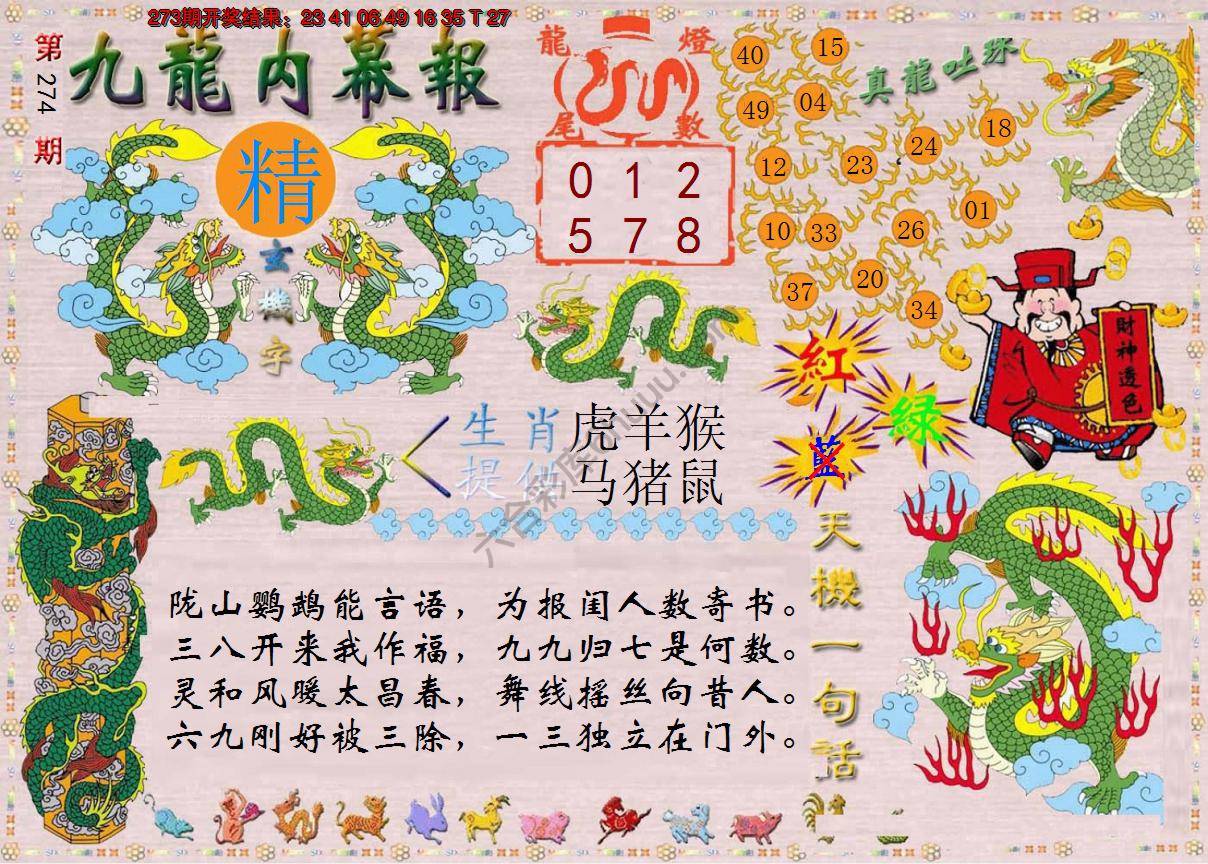 273期开奖结果：23 41 06 49 16 35 T 27
第274期
九龍内幕報
精
玄機字
龍燈尾數
0 1 2
5 7 8
真龍吐珠
40 15
49 04
24 18
12 23
01
10 33 26
20
37 34
財神透色
紅
綠
藍
生肖 虎羊猴
提供 马猪鼠
天機一句話
陇山鹦鹉能言语，为报闺人数寄书。
三八开来我作福，九九归七是何数。
灵和风暖太昌春，舞线摇丝向昔人。
六九刚好被三除，一三独立在门外。